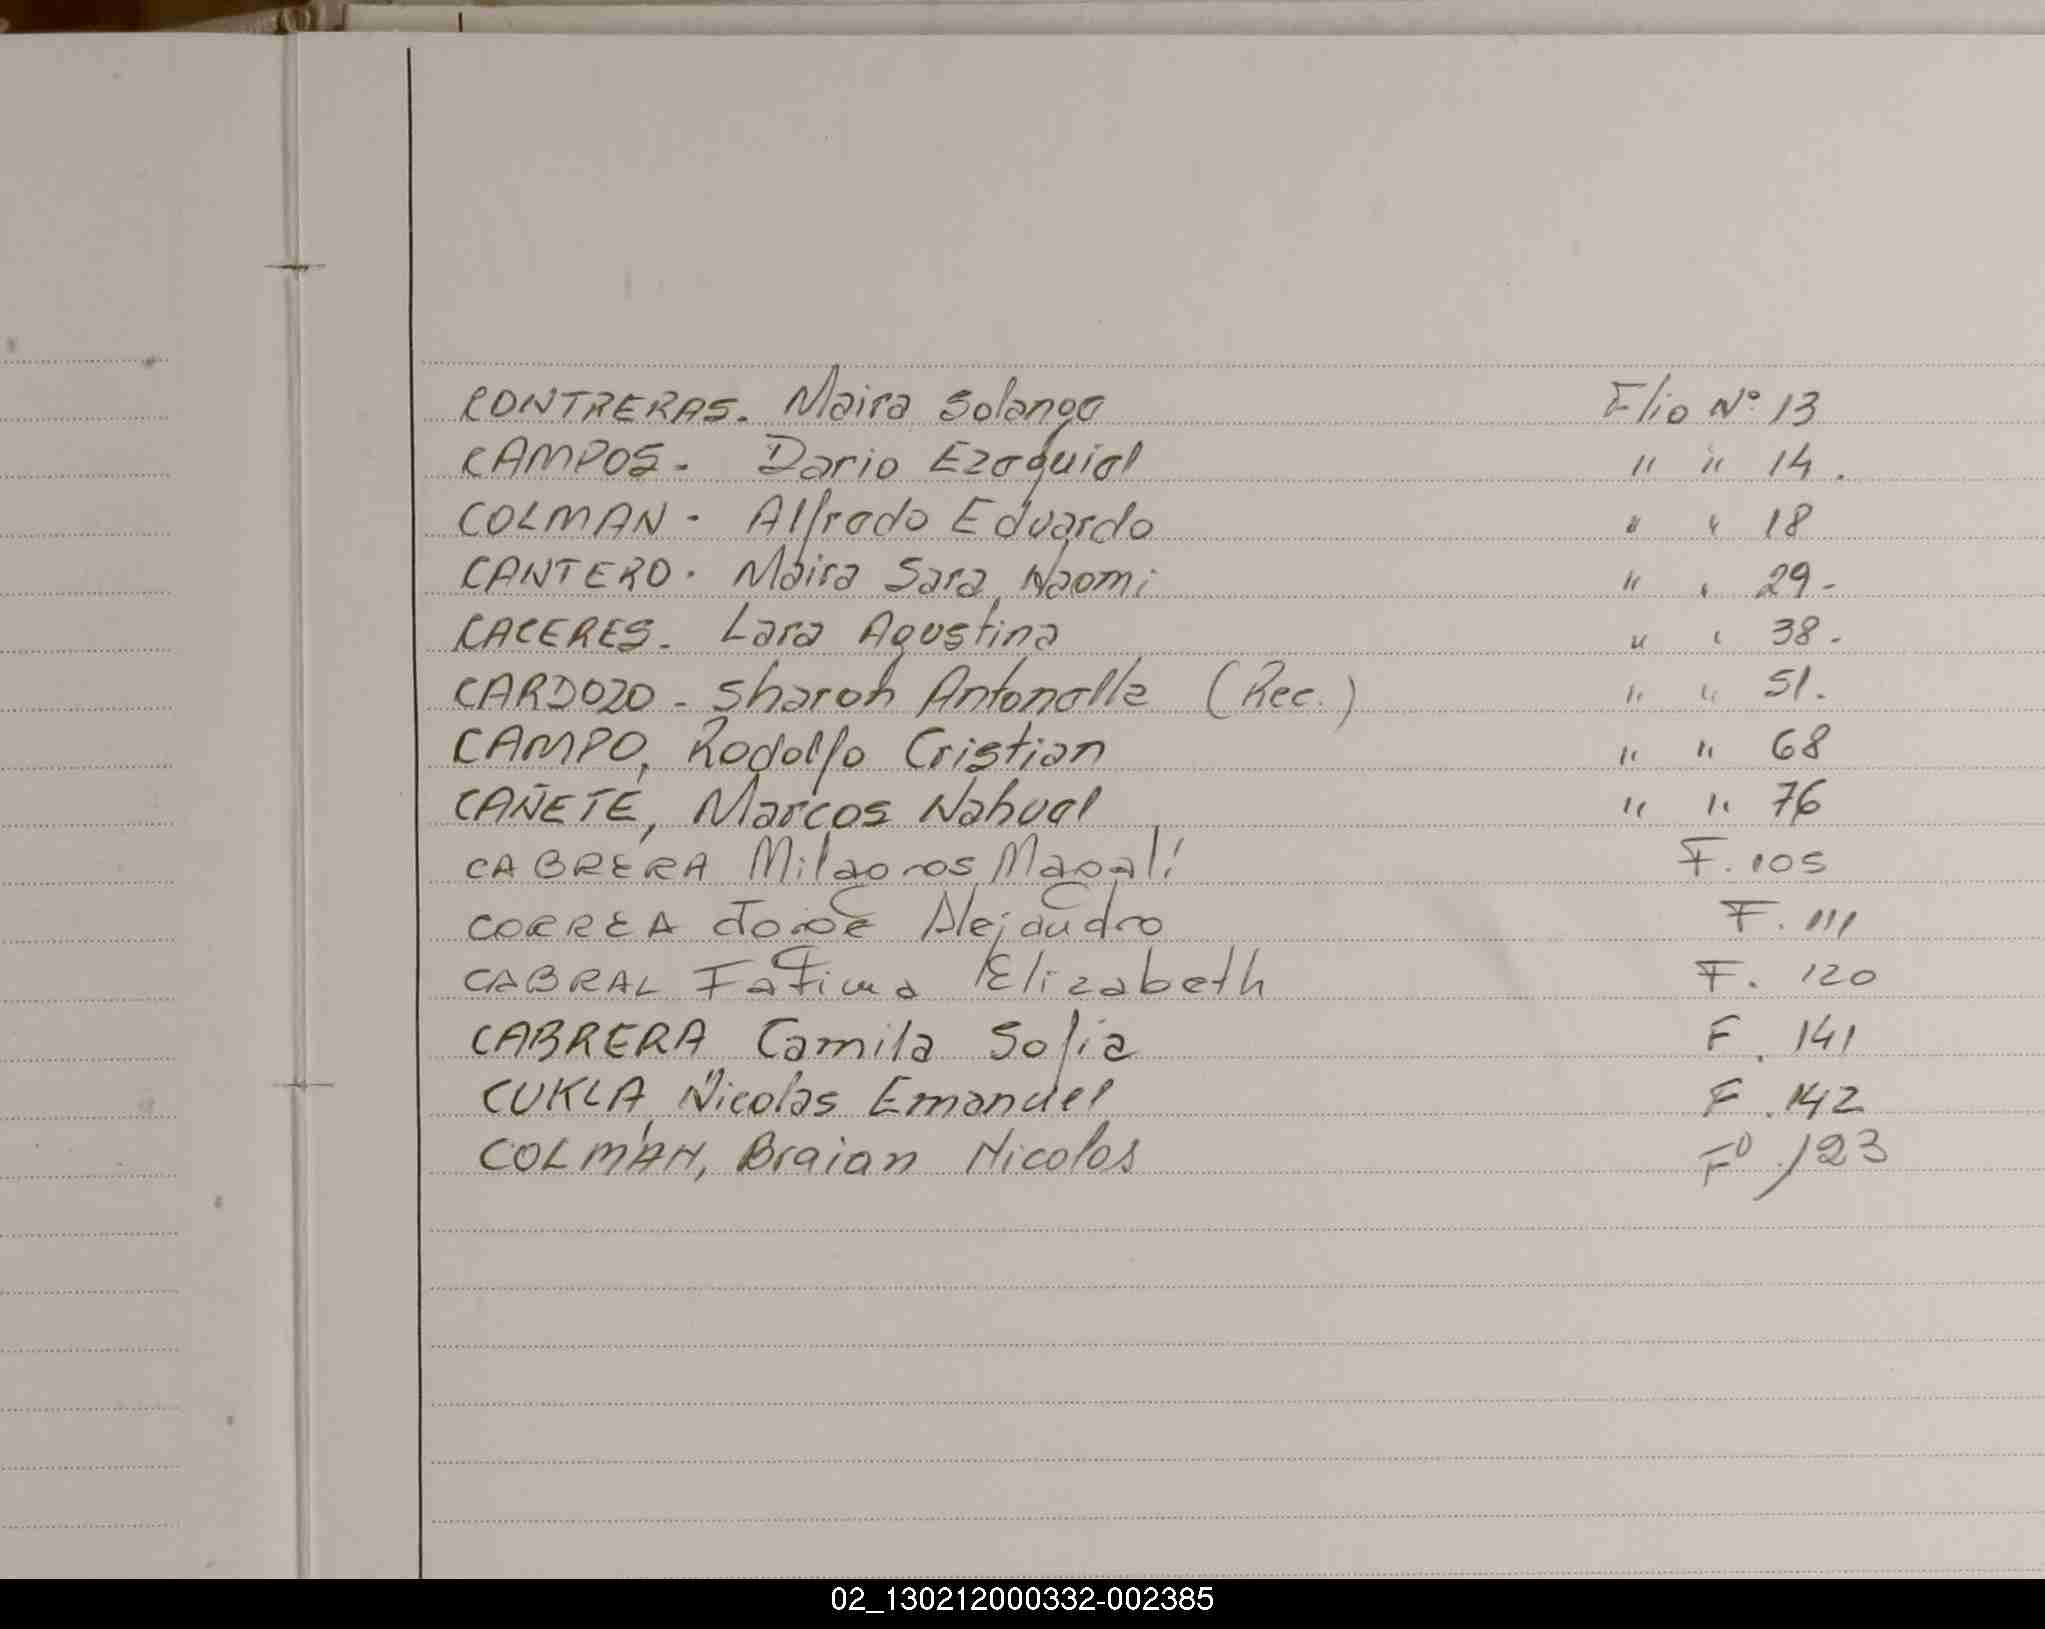 CONTRERAS. Maira Solange Flio Nº 13
CAMPOS. Dario Ezequiel " " 14.
COLMAN. Alfredo Eduardo " " 18
CANTERO. Maira Sara Naomi " " 29-
CACERES. Lara Agustina " " 38.
CARDOZO - Sharon Antonella (Rec.) " " 51.
CAMPO, Rodolfo Cristian " " 68
CAÑETE, Marcos Nahuel " " 76
CABRERA Milagros Magalí F. 105
CORREA Jorge Alejandro F. 111
CABRAL Fatima Elizabeth F. 120
CABRERA Camila Sofia F. 141
CUKLA, Nicolas Emanuel F. 142
COLMÁN, Braian Nicolas Fº 123
02_130212000332-002385